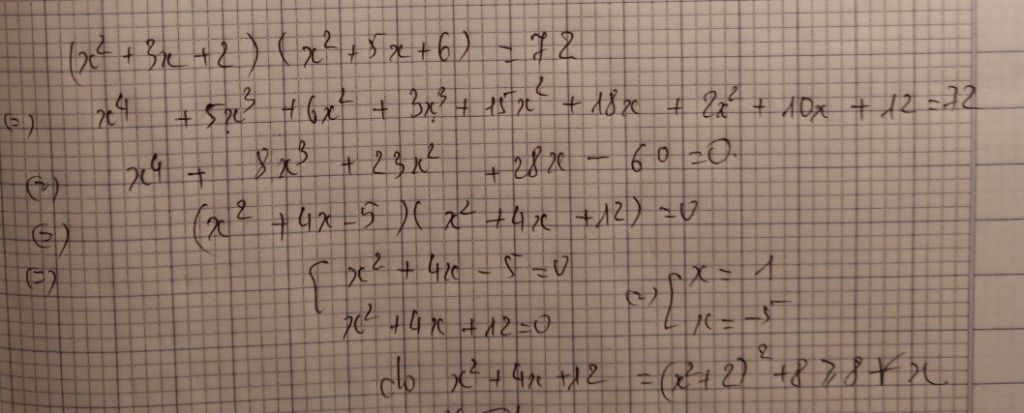 (x² + 3x + 2) (x² + 5x + 6) = 72
(=) x⁴ + 5x³ + 6x² + 3x³ + 15x² + 18x + 2x² + 10x + 12 = 72
(=) x⁴ + 8x³ + 23x² + 28x - 60 = 0.
(=) (x² + 4x - 5)(x² + 4x + 12) = 0
(=) [ x² + 4x - 5 = 0 (=) [ x = 1
x² + 4x + 12 = 0 x = -5
do x² + 4x + 12 = (x² + 2)² + 8 ≥ 8 ∀ x